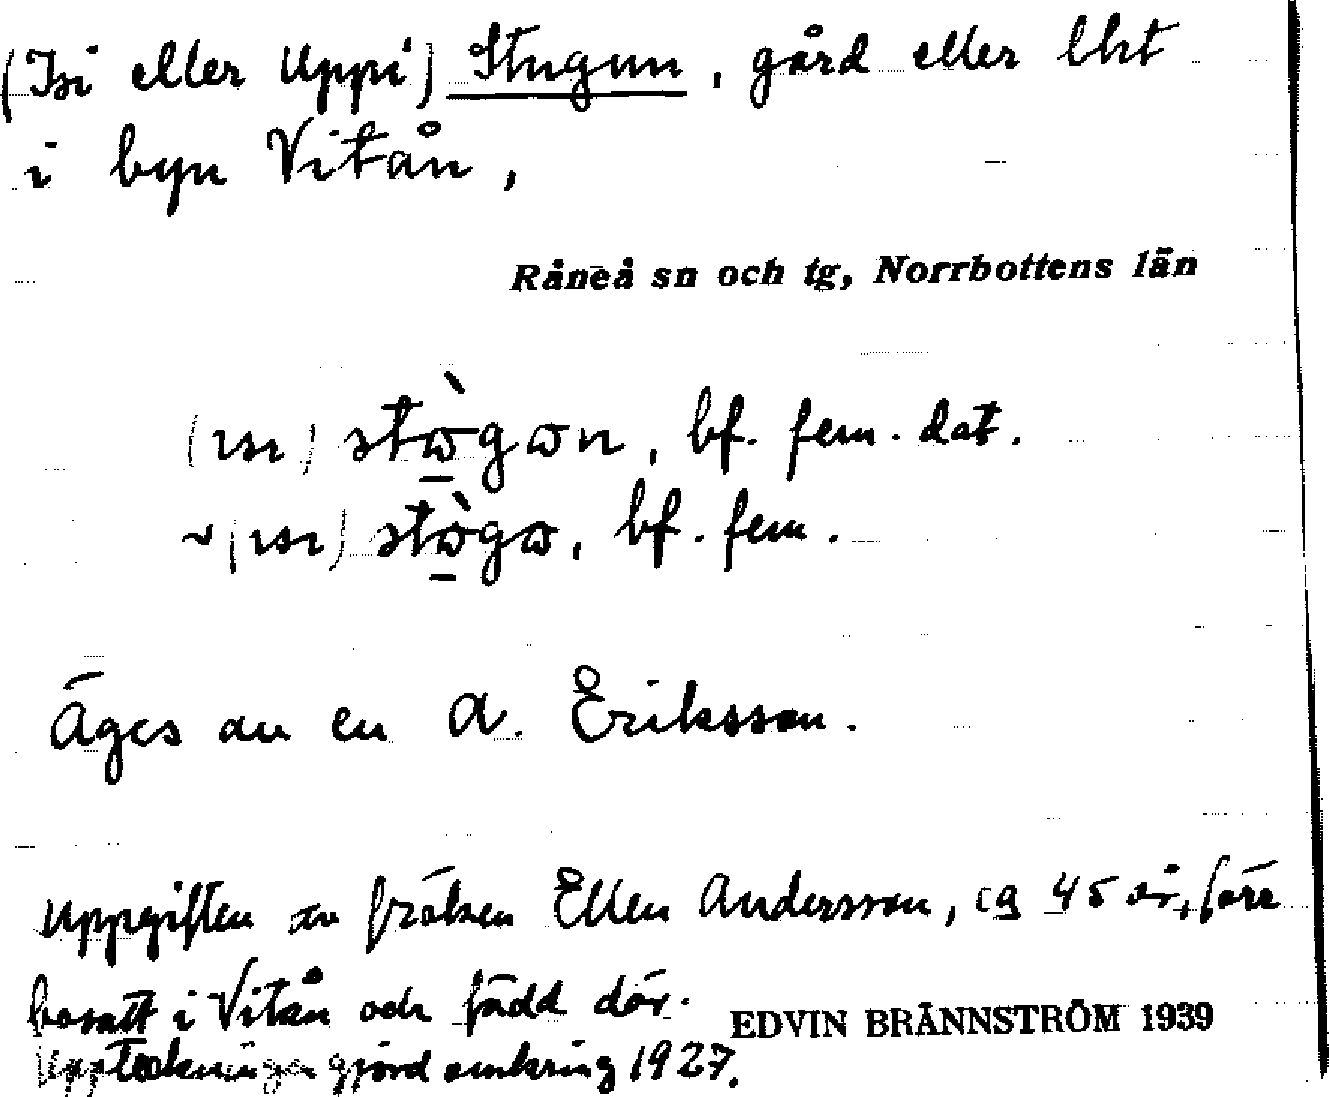 (Isi eller Uppi) Stugun, gård eller lht
i byn Vitån,
Råneå sn och tg, Norrbottens län
(ɪsɪ) stɷ̀gɷn, bf. fem. dat.
~ (ɪsɪ) stɷ̀gɷ, bf. fem.
Äges av en A. Eriksson.
Uppgiften av fröken Ellen Andersson, ca 45 år, förr
bosatt i Vitån och född där.
EDVIN BRÄNNSTRÖM 1939
Uppteckningen gjord omkring 1927.